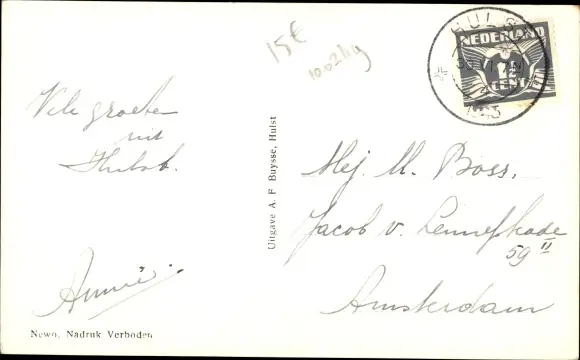 15€
HULST
NEDERLAND
CENT
Vele groeten
uit
Hulst.
Annie.
Newo, Nadruk Verboden
Uitgave A. F. Buysse, Hulst
Mej. M. Boss.
Jacob v. Lennepkade
59 II
Amsterdam